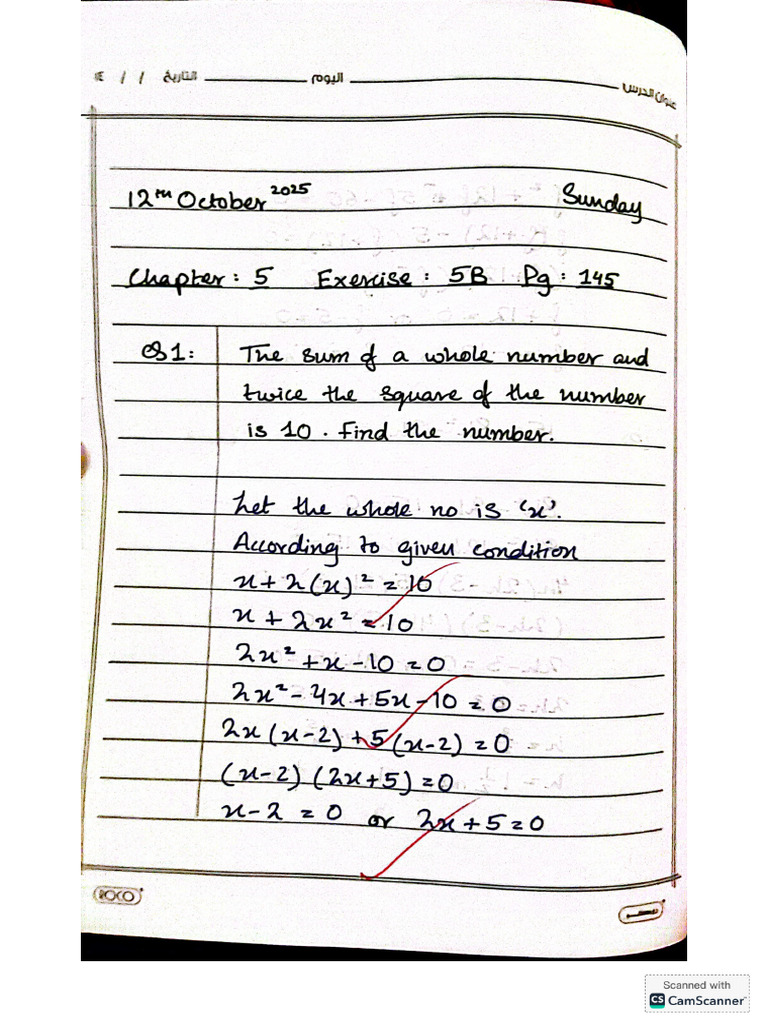 عنوان الدرس اليوم التاريخ / / ١٤
12th October 2025 Sunday
Chapter: 5 Exercise: 5B Pg: 145
Q1: The sum of a whole number and
twice the square of the number
is 10. Find the number.
Let the whole no is 'x'.
According to given condition
x + 2(x)² = 10
x + 2x² = 10
2x² + x - 10 = 0
2x² - 4x + 5x - 10 = 0
2x(x-2) + 5(x-2) = 0
(x-2) (2x+5) = 0
x - 2 = 0 or 2x + 5 = 0
ROCO
Scanned with
CS CamScanner